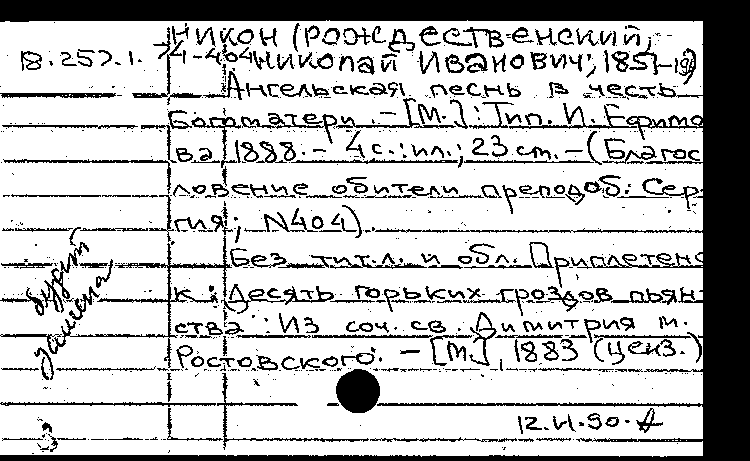 НИКОН (РОЖДЕСТВЕНСКИЙ,
18.257.1.74-404 НИКОЛАЙ ИВАНОВИЧ; 1851-19)
Ангельская песнь в честь
Богоматери. – [М.] : Тип. И. Ефимо
ва, 1888. – 4 с. : ил.; 23 cm. – (Благос
ловение обители преподоб. Сер-
гия; N404).
Без тит.л. и обл. Приплетено
к : Десять горьких гроздов пьян
ства : Из соч. св. Димитрия м.
Ростовского. – [М.], 1883 (ценз.)
будет
12.VI.90.